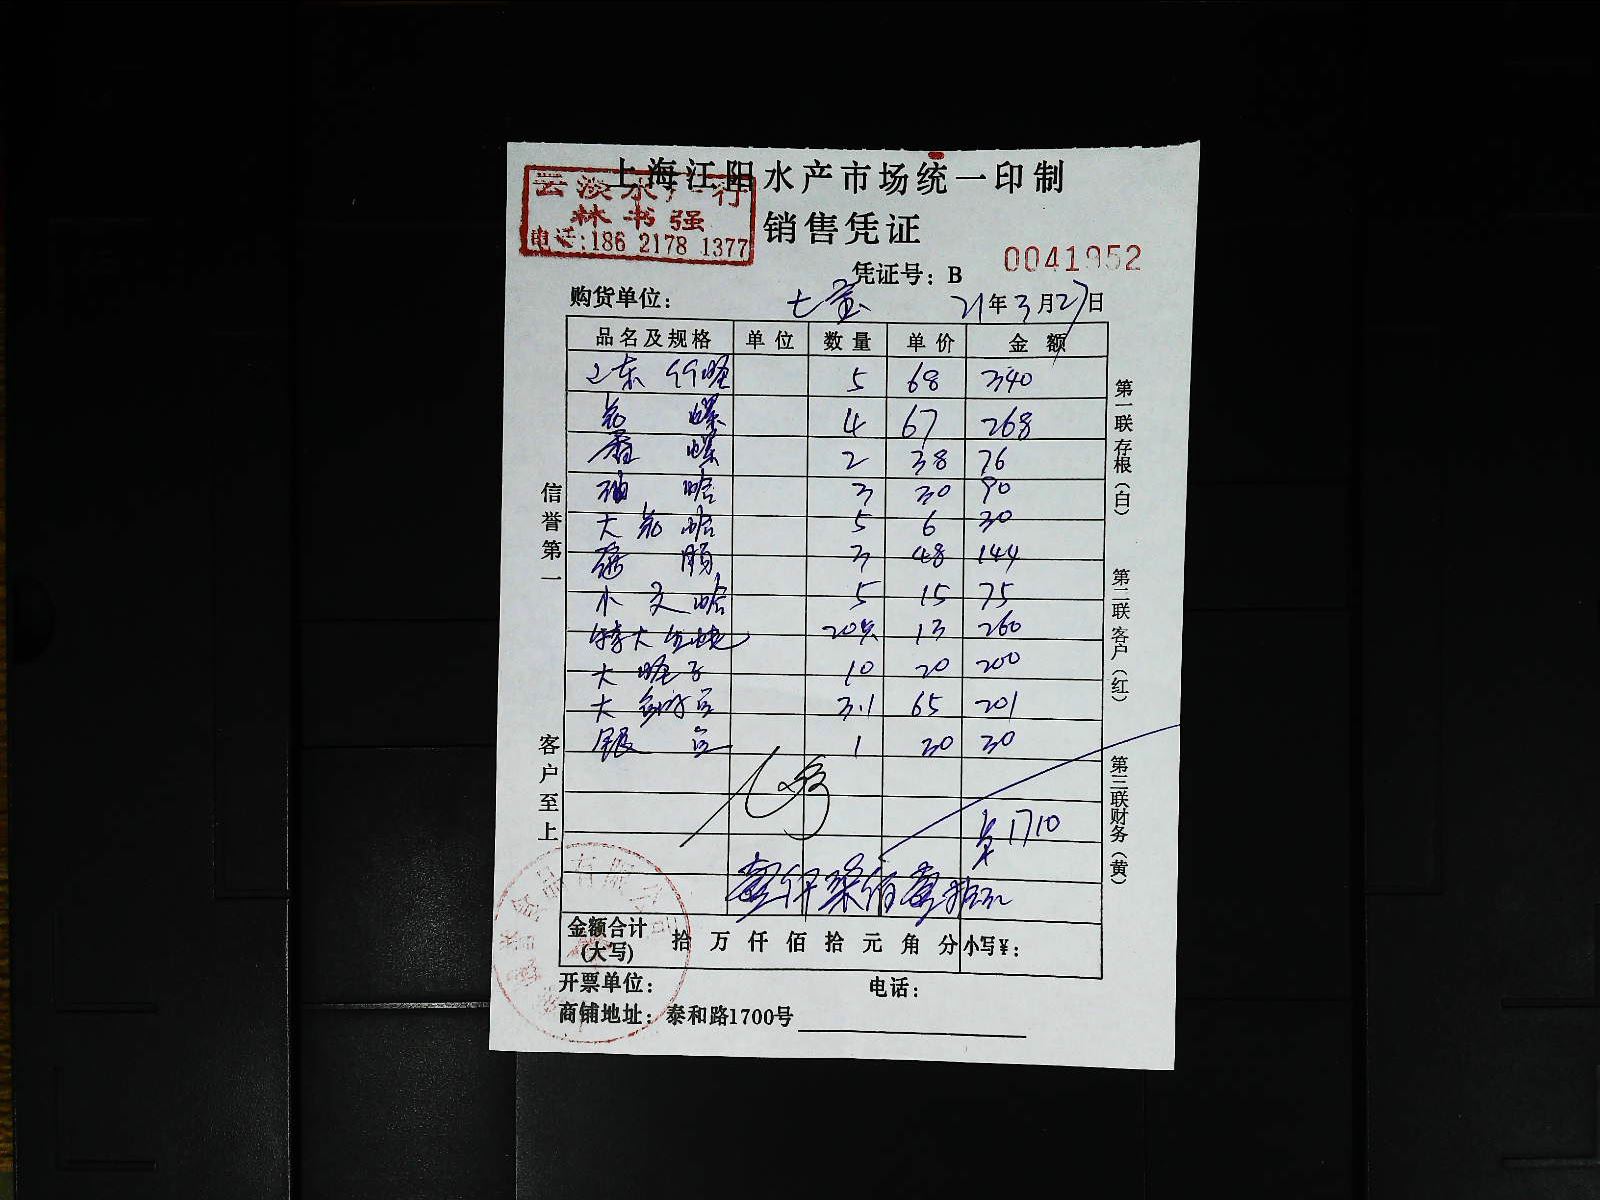 上海江阳水产市场统一印制
云淡水产行
林书强
电话:186 2178 1377
销售凭证
凭证号: B 0041952
购货单位: 七宝 21年3月27日
品名及规格 单位 数量 单价 金额
5 68 340
花螺 4 67 268
螺 2 38 76
蛤 3 30 90
大花蛤 5 6 30
3 48 144
小文蛤 5 15 75
特大 20只 13 260
大蛏子 10 20 200
大 3.1 65 201
银 1 30 30
共1710
壹仟柒佰壹拾元
金额合计(大写) 拾 万 仟 佰 拾 元 角 分 小写¥:
开票单位: 电话:
商铺地址: 泰和路1700号
信誉第一
客户至上
第一联存根(白)
第二联客户(红)
第三联财务(黄)